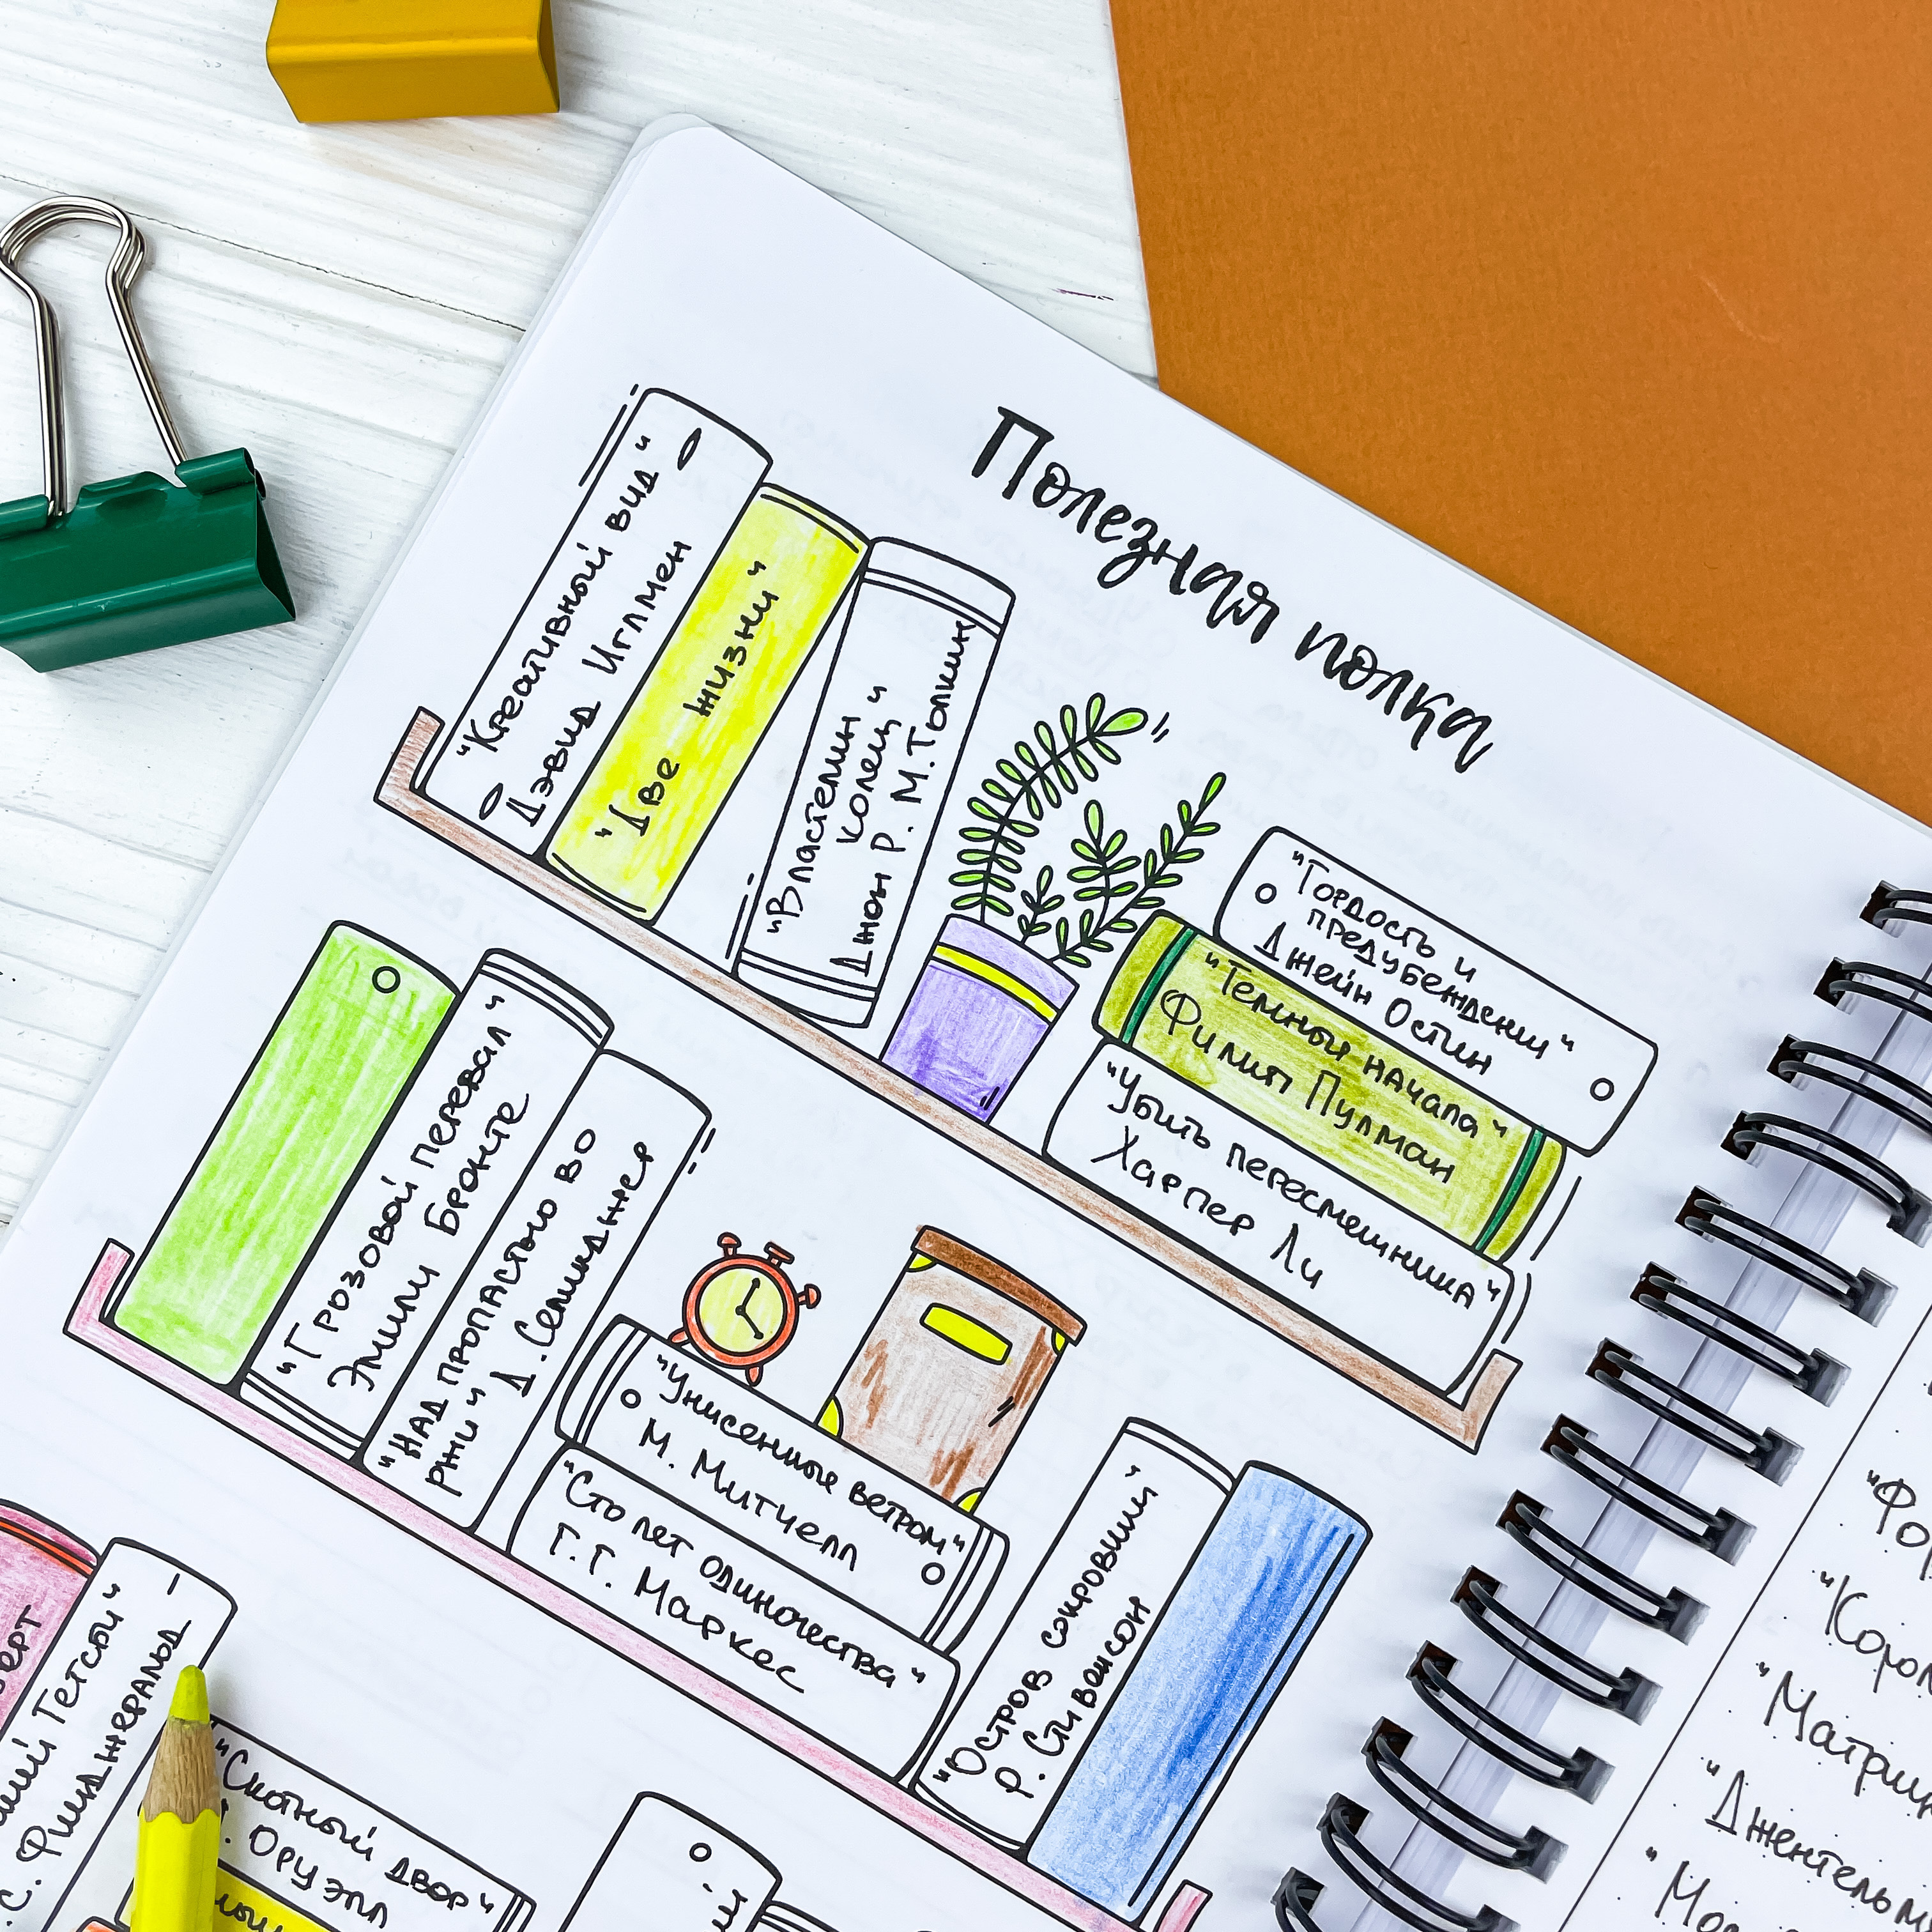 Полезная полка
"Креативный вид"
Дэвид Иглмен
"Две жизни"
"Властелин
колец"
Джон Р. М. Толкин
"Гордость и
предубеждении"
Джейн Остин
"Темные начала"
Филип Пулман
"Убить пересмешника"
Харпер Ли
"Грозовой перевал"
Эмили Бронте
"Над пропастью во
ржи" Д. Селинджер
"Унисенные ветром"
М. Митчелл
"Сто лет одиночества"
Г. Г. Маркес
"Остров сокровищ"
Ф. Стивенсон
Гетсби"
С. Фицджеральд
"Скотный двор"
Оруэлл
"Матри
"Джентельм